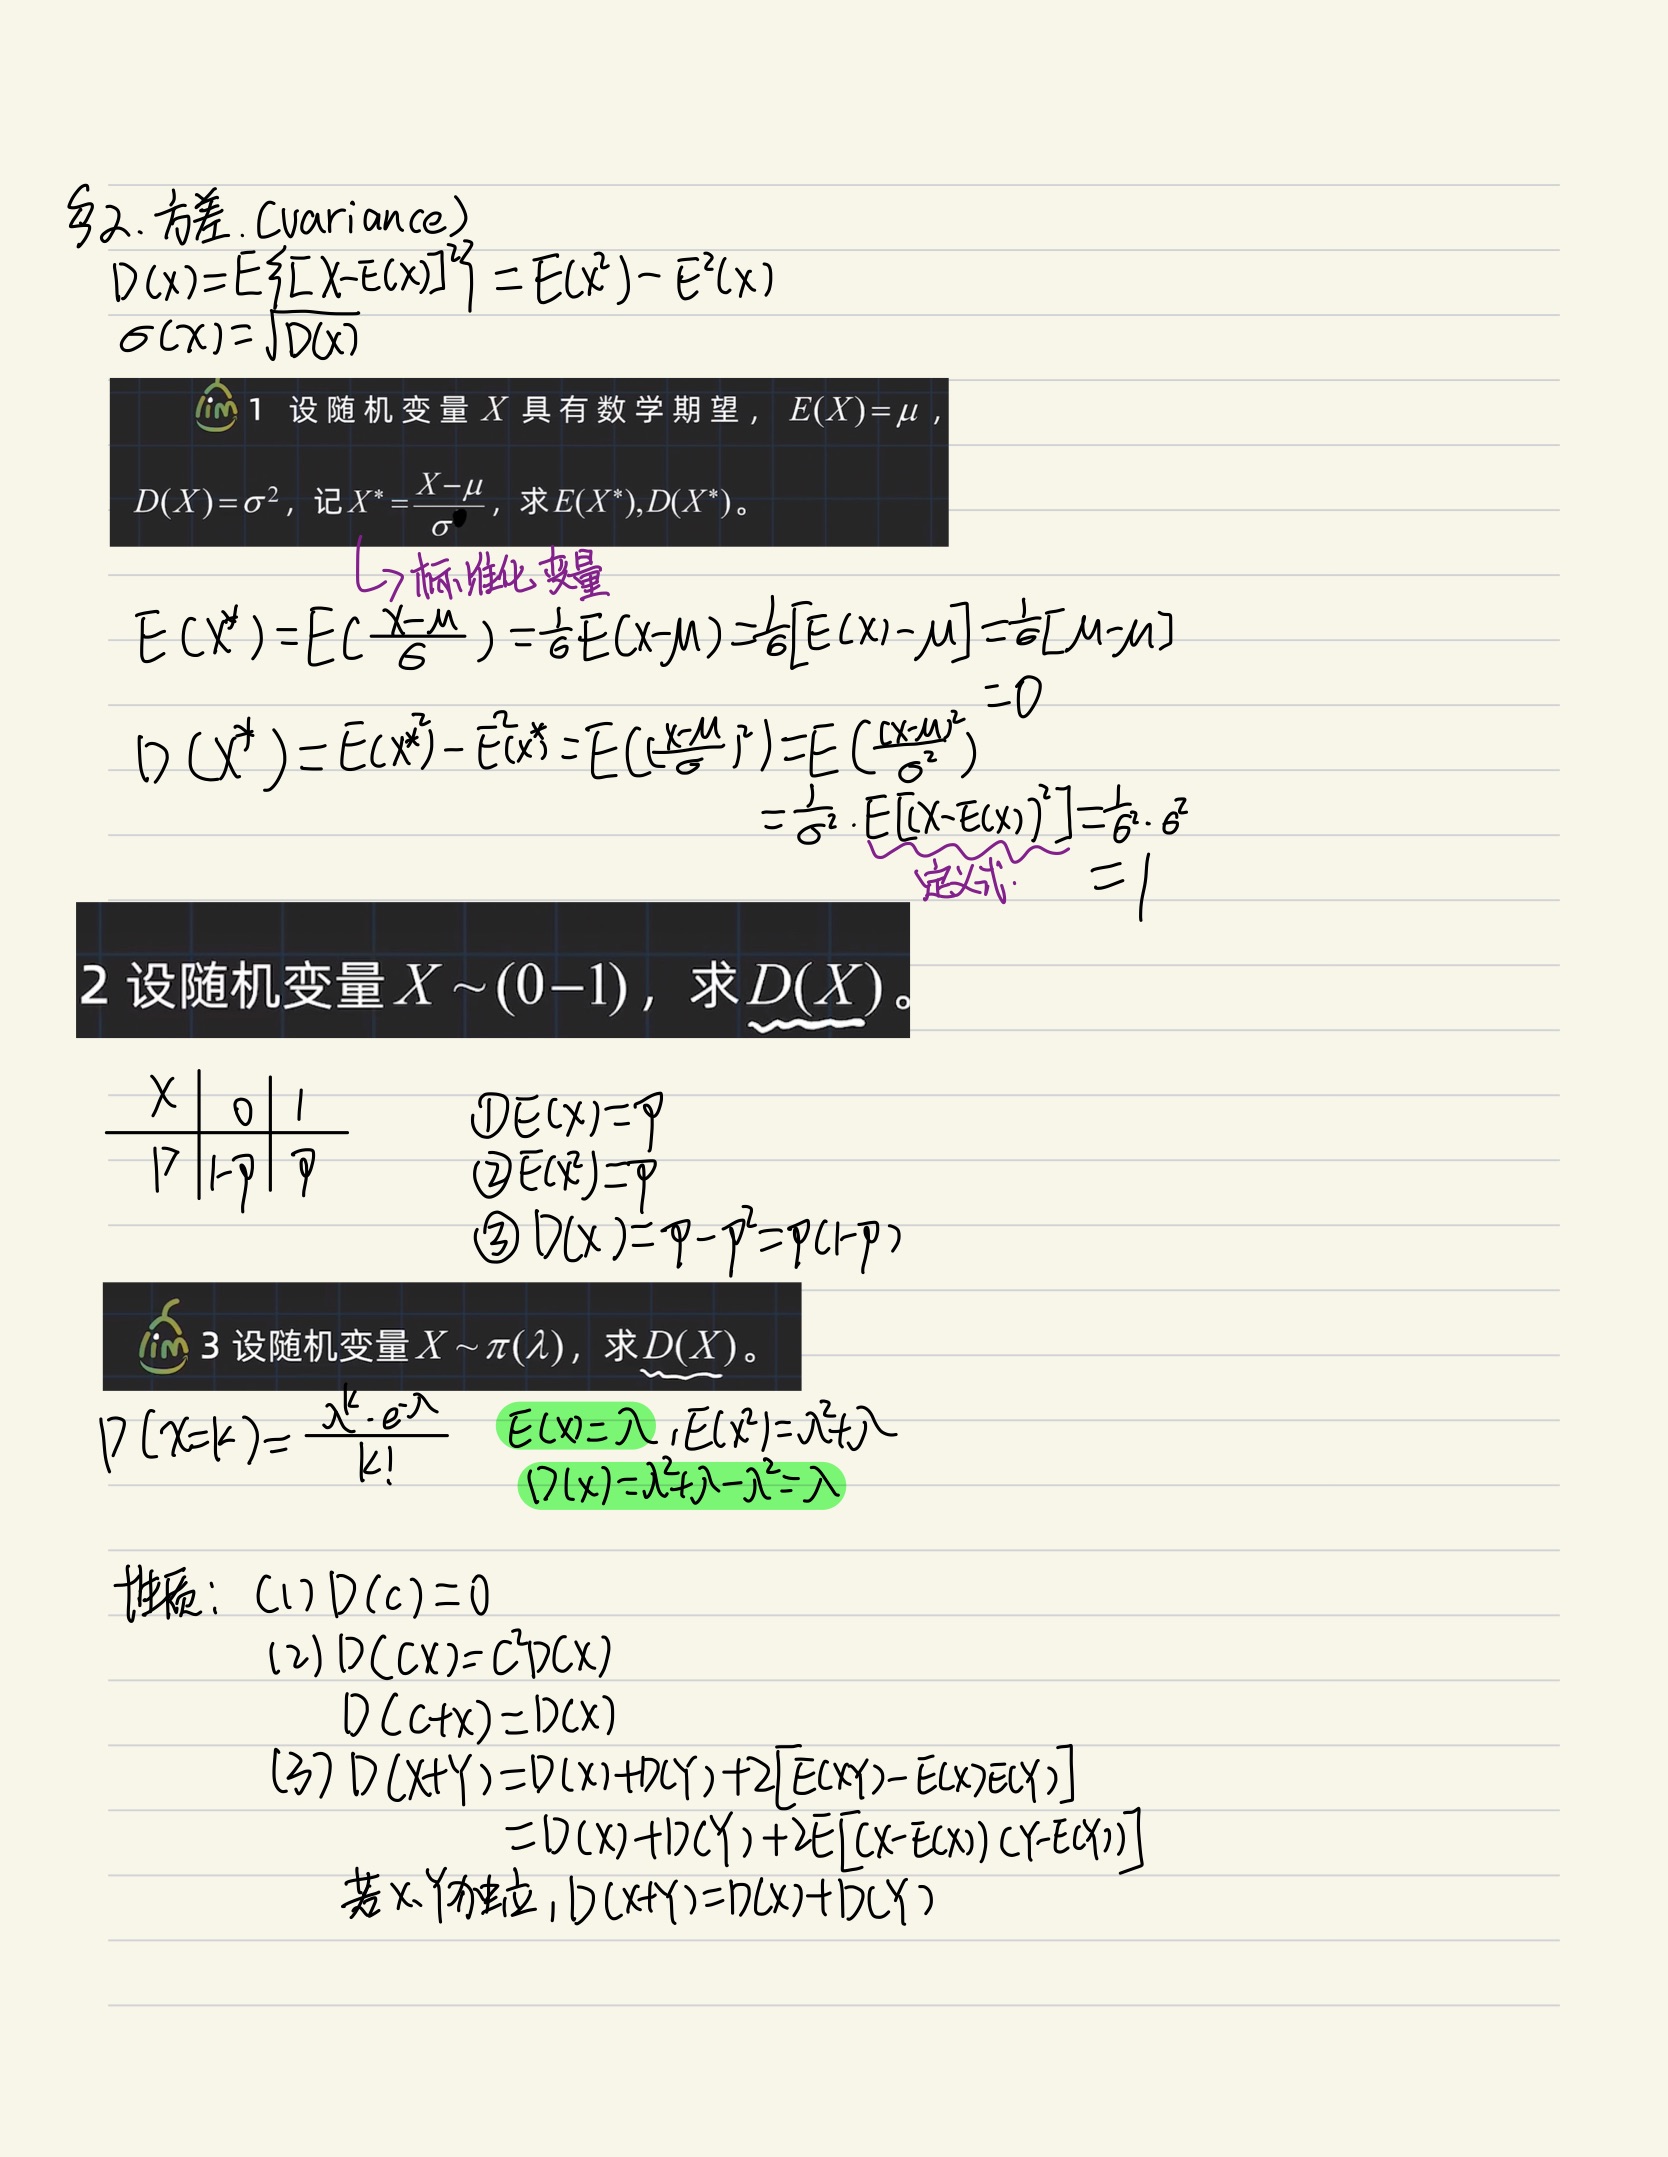 §2. 方差. (variance)
D(X)=E{[X-E(X)]²}=E(X²)-E²(X)
σ(X)=√D(X)
lim 1 设随机变量 X 具有数学期望， E(X)=μ，
D(X)=σ²，记X*=(X-μ)/σ，求E(X*),D(X*)。
↳标准化变量
E(X*)=E((X-μ)/σ)=1/σ E(X-μ)=1/σ[E(X)-μ]=1/σ[μ-μ]
=0
D(X*)=E(X*²)-E²(X*)=E(((X-μ)/σ)²)=E((X-μ)²/σ²)
=1/σ²·E[(X-E(X))²]=1/σ²·σ²
定义式. =1
2 设随机变量X~(0-1)，求D(X)。
X | 0 | 1
P | 1-p | p
①E(X)=p
②E(X²)=p
③D(X)=p-p²=p(1-p)
lim 3 设随机变量X~π(λ)，求D(X)。
P(X=k)=λ^k·e^-λ/k! E(X)=λ,E(X²)=λ²+λ
D(X)=λ²+λ-λ²=λ
性质: (1)D(c)=0
(2)D(CX)=C²D(X)
D(C+X)=D(X)
(3)D(X+Y)=D(X)+D(Y)+2[E(XY)-E(X)E(Y)]
=D(X)+D(Y)+2E[(X-E(X))(Y-E(Y))]
若X、Y独立,D(X+Y)=D(X)+D(Y)